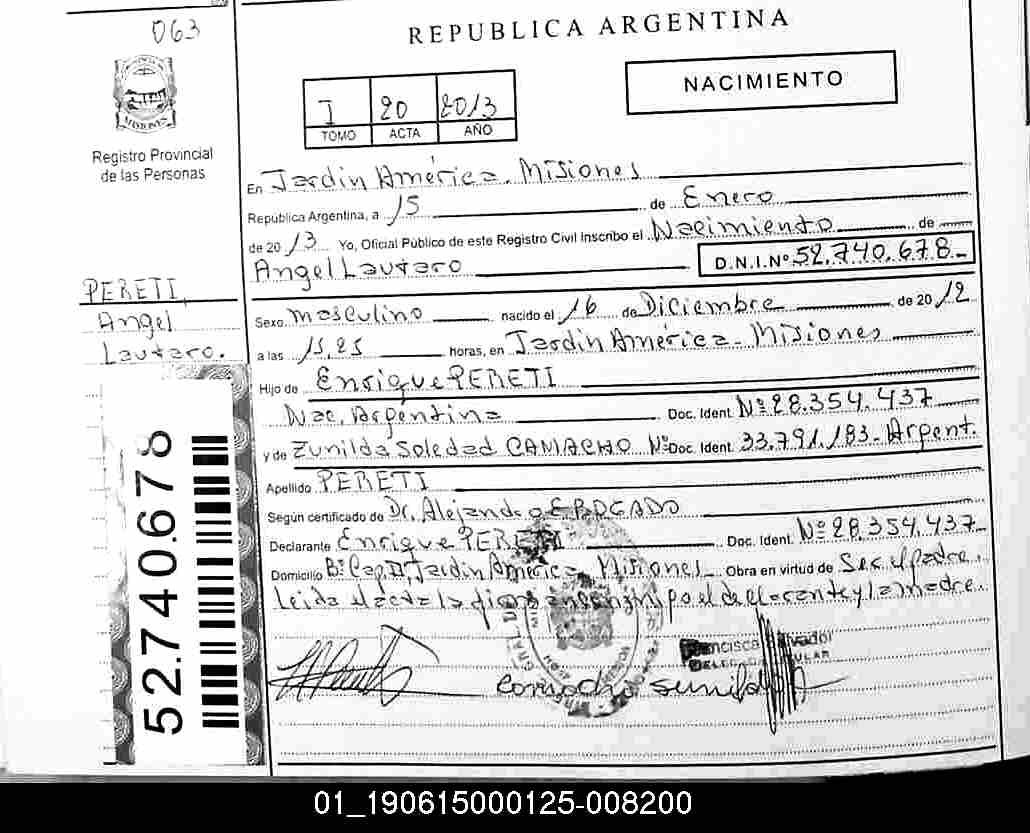 063
REPUBLICA ARGENTINA
NACIMIENTO
I 20 2013
TOMO ACTA AÑO
MISIONES
Registro Provincial
de las Personas
En Jardin América. Misiones
República Argentina, a 15 de Enero
de 2013 Yo, Oficial Público de este Registro Civil Inscribo el Nacimiento de
Angel Lautaro D.N.I.Nº 52.740.678.-
PERETI,
Angel
Lautaro.
Sexo masculino nacido el 16 de Diciembre de 2012
a las 15,25 horas, en Jardin América - Misiones
Hijo de Enrique PERETI
Nac. Argentina Doc. Ident. Nº 28.354.437
y de Zunilda Soledad CAMACHO Nº Doc. Ident. 33.791.183 - Argent.
Apellido PERETI
Según certificado de Dr. Alejandro
Declarante Enrique PERETI Doc. Ident. Nº 28.354.437-
Domicilio Bº Cap. II, Jardin América Misiones Obra en virtud de Ser el padre.
Leida el acta la firma el declarante y la madre.
Francisca
TITULAR
52.740.678
01_190615000125-008200